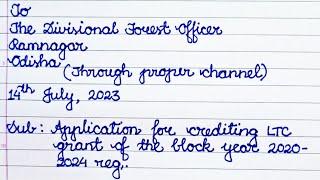 To
The Divisional Forest Officer
Ramnagar
Odisha
(Through proper channel)
14th July, 2023
Sub: Application for crediting LTC
grant of the block year 2020-
2024 reg..